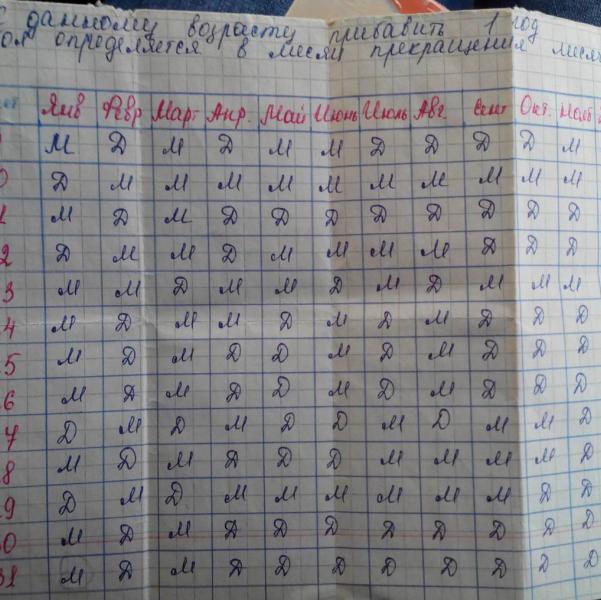 К данному возрасту прибавить 1 год
определяется в месяц прекращения
Янв Февр Март Апр. Май Июнь Июль Авг. Сент Окт. Нояб
М Д М Д М М Д Д Д Д М
0 Д М М М М М М М М М М
1 М Д М Д Д Д Д Д Д Д Д
2 Д М М Д М М М М Д Д Д
3 М М Д М М Д М Д М М М
4 М Д М М Д М Д М Д Д Д
5 М Д М Д Д М Д М Д Д Д
6 М Д М Д Д М Д М Д Д Д
7 Д М Д М Д Д М Д М М Д
8 М Д М Д Д Д М М М М Д
9 Д М Д М М М М М М Д Д
30 М Д М Д Д Д Д Д Д Д Д
31 М Д М Д Д Д Д Д Д Д Д